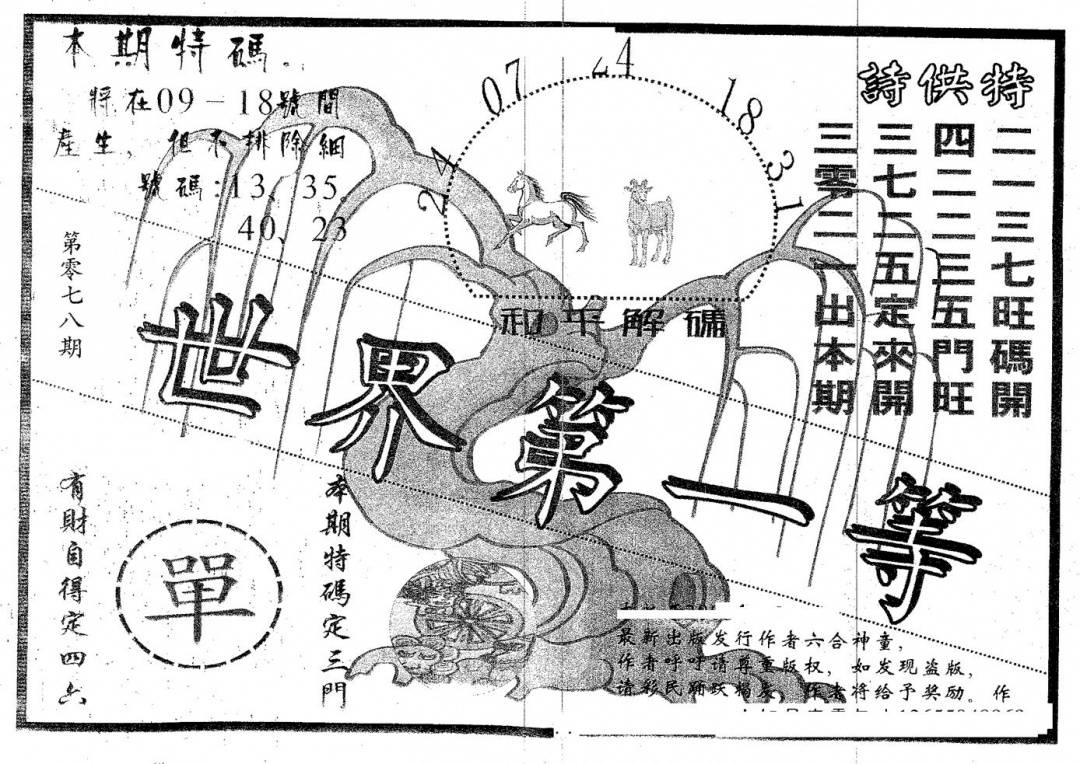 本期特碼。
將在09-18號間
產生，但不排除細
號碼:13、35、
40、23
第零七八期
24
07
24
18
31
和平解碼
特供詩
二一三七旺碼開
四二二三五門旺
三七二五定來開
三零二一出本期
世界第一等
有財自得定四六
單
本期特碼定三門
最新出版发行作者六合神童，
作者呼吁请尊重版权，如发现盗版，
请彩民踊跃揭发，作者将给予奖励。作